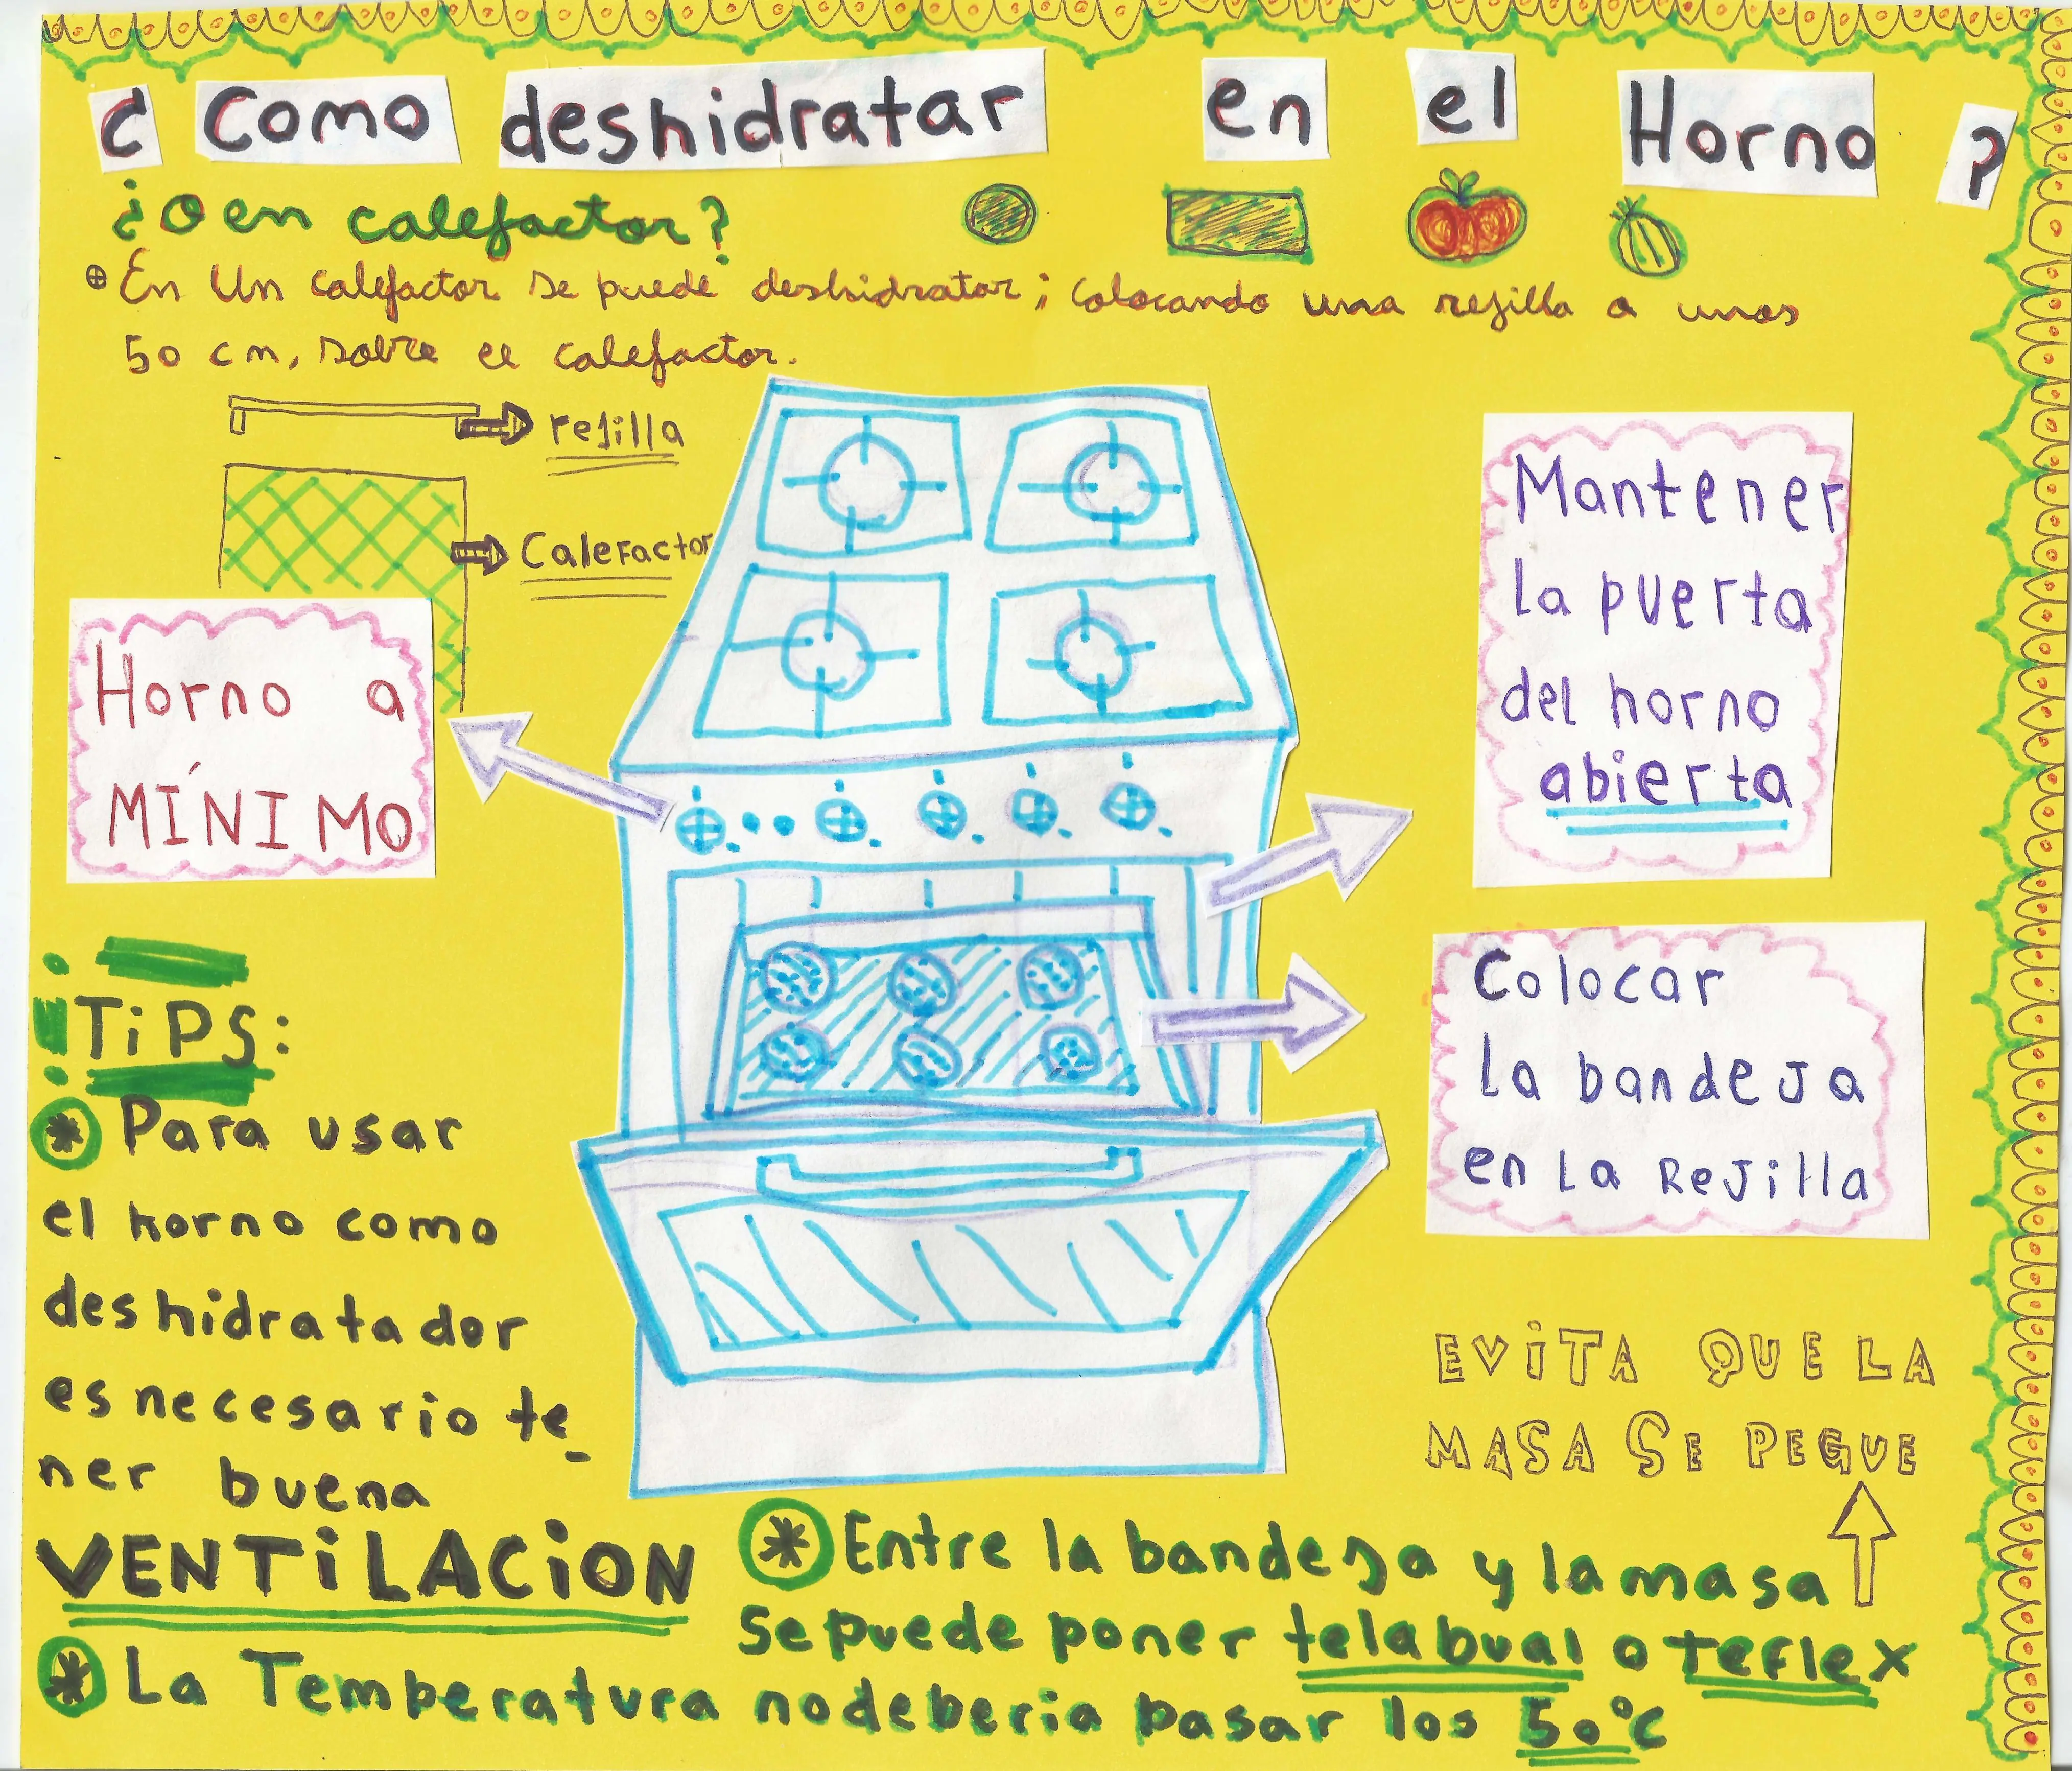 ¿ Como deshidratar en el Horno ?
¿O en calefactor?
En Un calefactor se puede deshidratar; colocando una rejilla a unos
50 cm, sobre el calefactor.
rejilla
Calefactor
Horno a
MÍNIMO
Mantener
la puerta
del horno
abierta
Colocar
la bandeja
en la Rejilla
¡TiPS:
* Para usar
el horno como
deshidratador
es necesario te_
ner buena
VENTiLACiON
EViTA QUE LA
MASA SE PEGUE
* Entre la bandeja y la masa
se puede poner tela bual o teflex
* La Temperatura no deberia pasar los 50°C